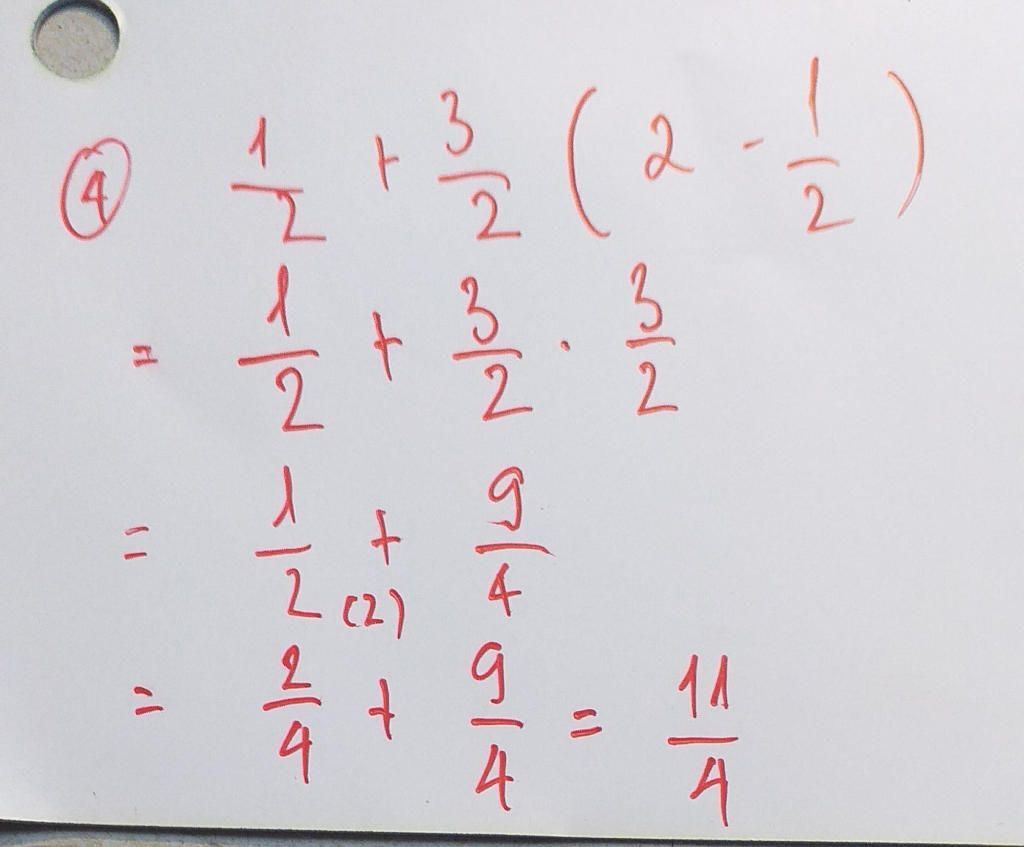 ④ 1/2 + 3/2 ( 2 - 1/2 )
= 1/2 + 3/2 · 3/2
= 1/2 (2) + 9/4
= 2/4 + 9/4 = 11/4